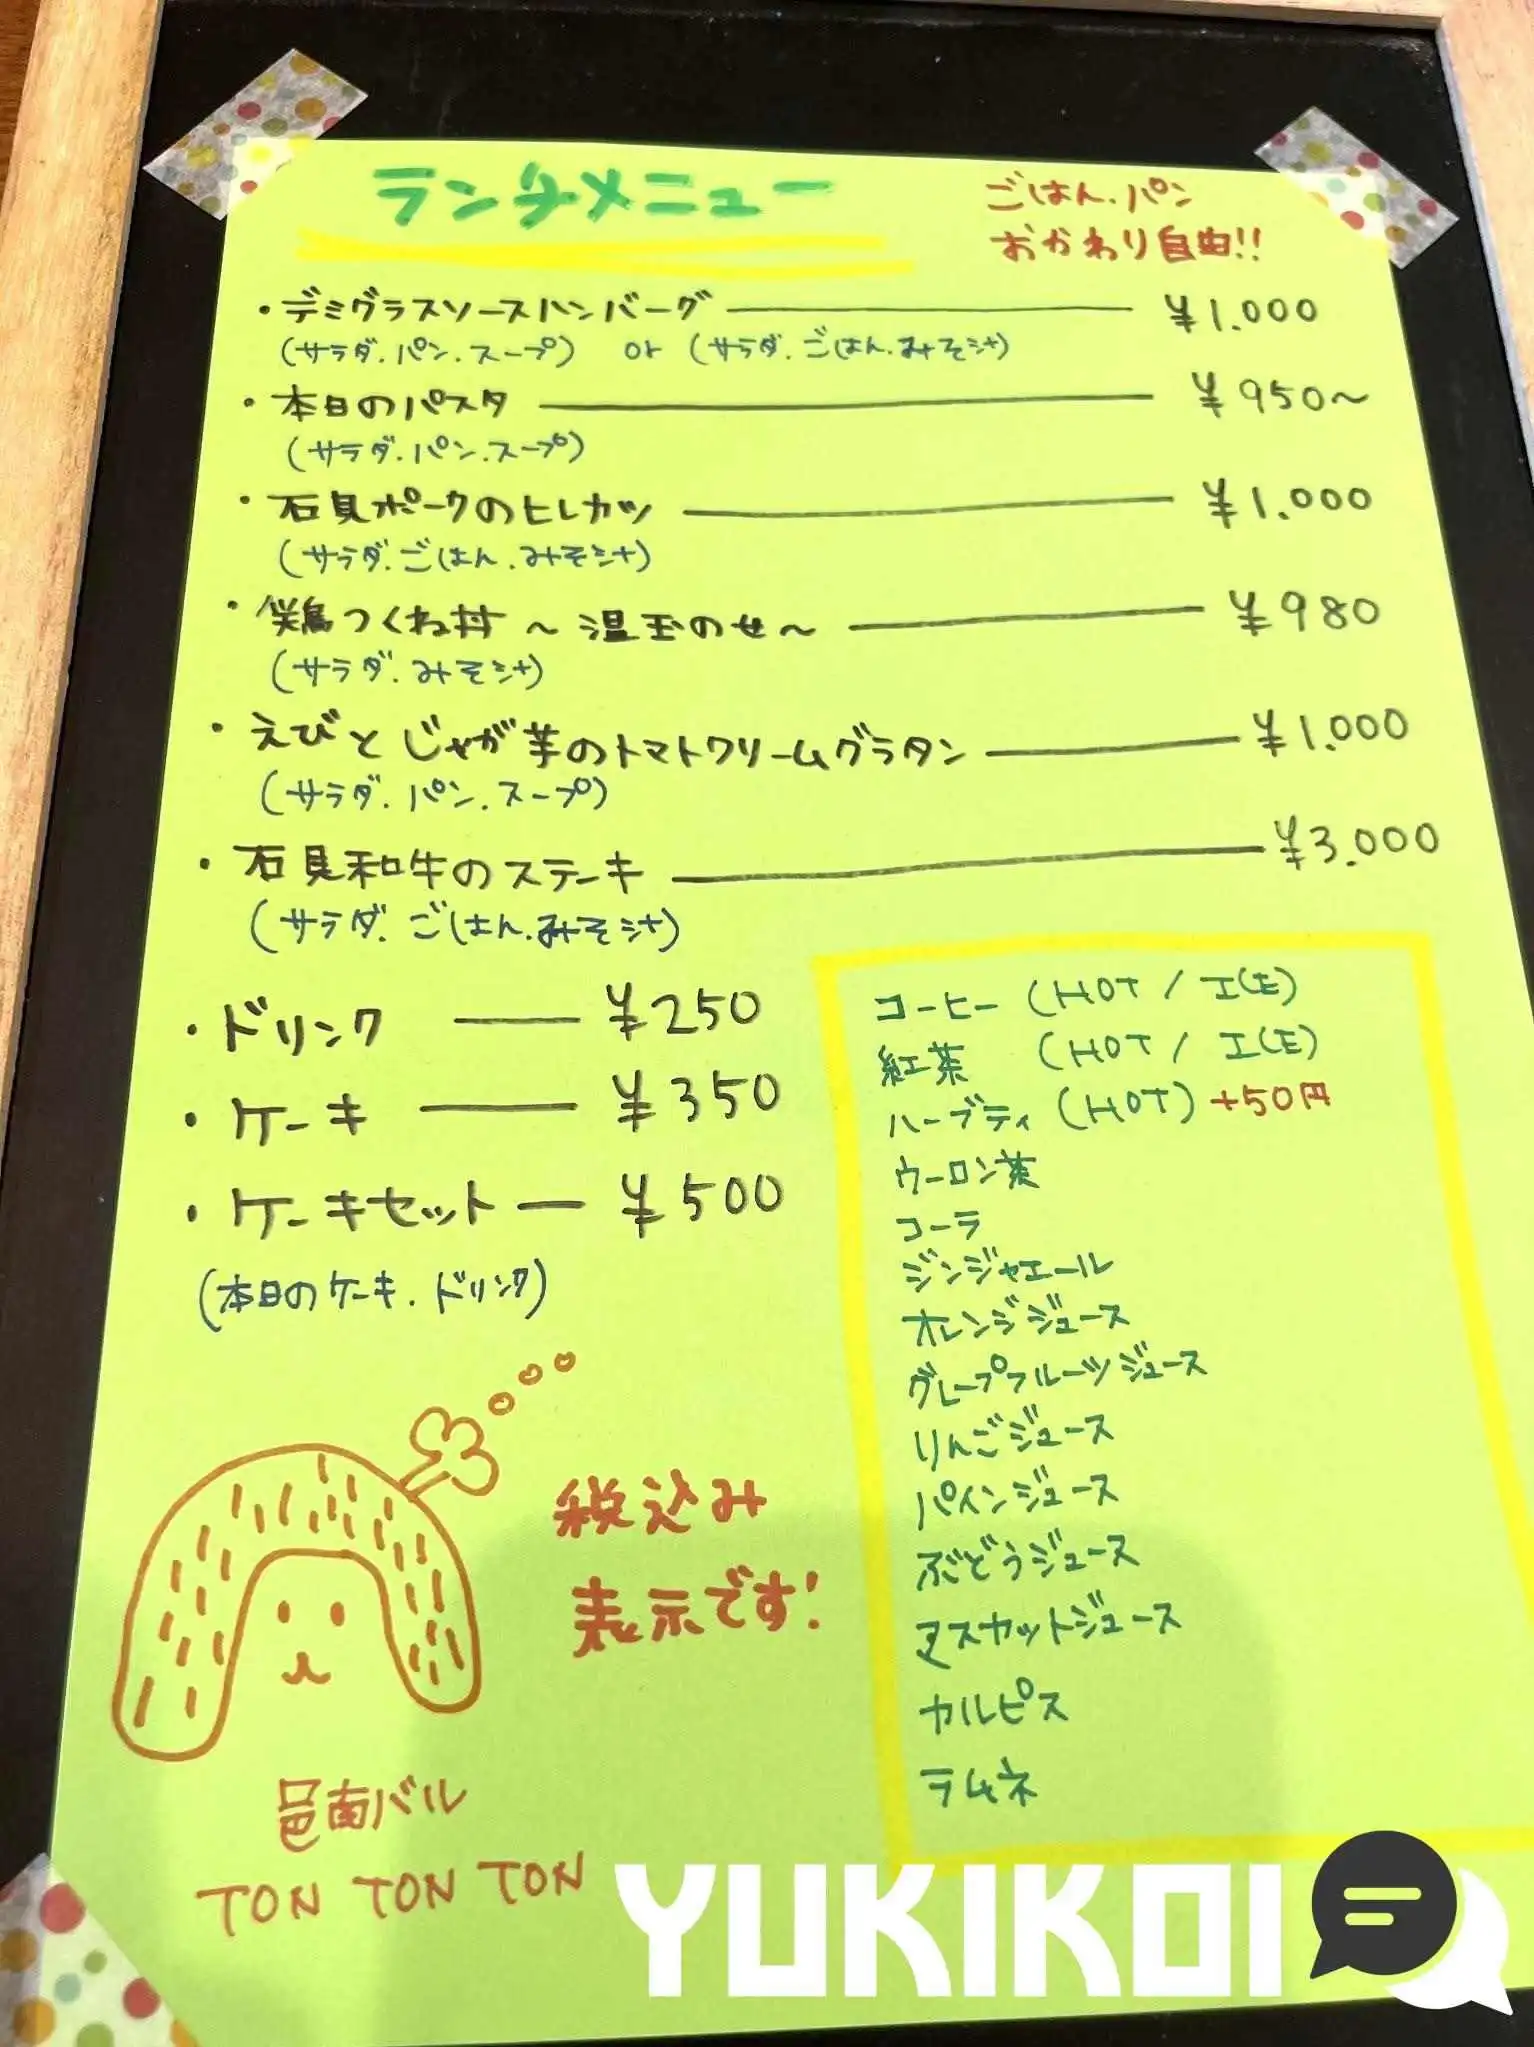 ランチメニュー
ごはん.パン
おかわり自由!!
・デミグラスソースハンバーグ ― ¥1.000
(サラダ.パン.スープ) or (サラダ.ごはん.みそ汁)
・本日のパスタ ― ¥950〜
(サラダ.パン.スープ)
・石見ポークのヒレカツ ― ¥1.000
(サラダ.ごはん.みそ汁)
・鶏つくね丼 〜温玉のせ〜 ― ¥980
(サラダ.みそ汁)
・えびとじゃが芋のトマトクリームグラタン ― ¥1.000
(サラダ.パン.スープ)
・石見和牛のステーキ ― ¥3.000
(サラダ.ごはん.みそ汁)
・ドリンク ― ¥250
・ケーキ ― ¥350
・ケーキセット ― ¥500
(本日のケーキ.ドリンク)
コーヒー (HOT / ICE)
紅茶 (HOT / ICE)
ハーブティ (HOT) +50円
ウーロン茶
コーラ
ジンジャエール
オレンジジュース
グレープフルーツジュース
りんごジュース
パインジュース
ぶどうジュース
マスカットジュース
カルピス
ラムネ
税込み
表示です!
邑南バル
TON TON TON
YUKIKOI